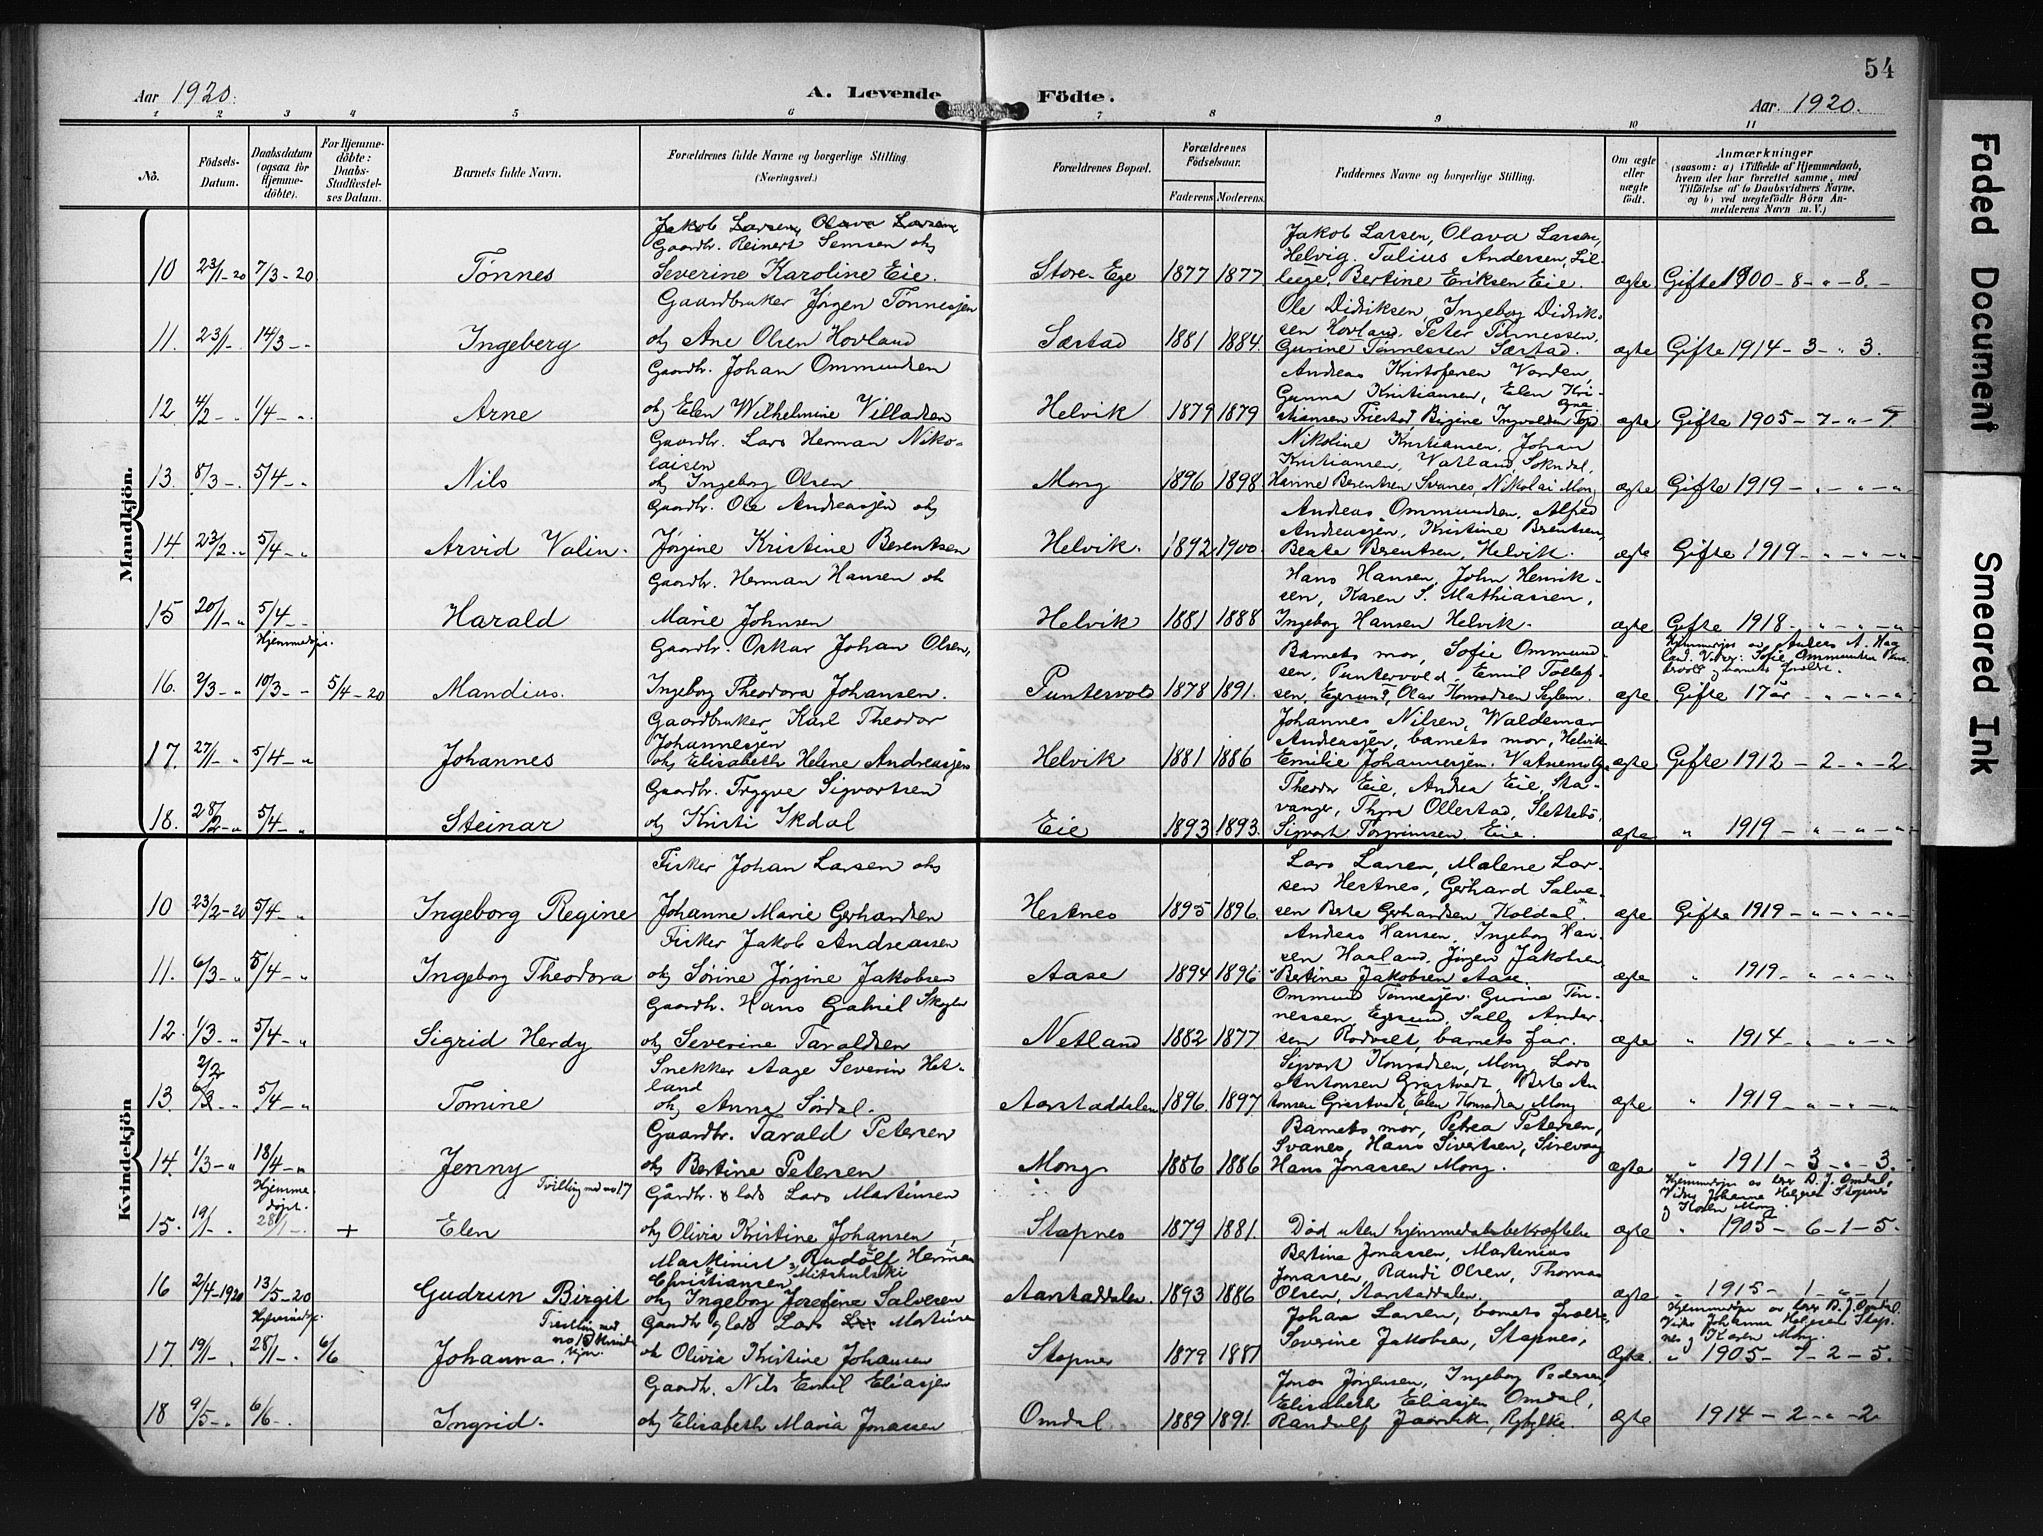 54
Aar 1920.
A. Levende Födte.
Aar 1920.
1 2 3 4 5 6 7 8 9 10 11
No.
Födsels-Datum.
Daabsdatum (ogsaa for Hjemme-döbte).
For Hjemme-döbte: Daabs-Stadfæstel-ses Datum.
Barnets fulde Navn.
Forældrenes fulde Navne og borgerlige Stilling (Næringsvei.)
Forældrenes Bopæl.
Forældrenes Födselsaar.
Faderens Moderens
Faddernes Navne og borgerlige Stilling.
Om ægte eller uægte født.
Anmærkninger
(saasom: a) i Tilfælde af Hjemmedaab,
hvem der har forrettet samme, med
Tilföielse af to Daabsvidners Navne,
og b) ved uægtefödte Börn An-
melderens Navn m. V.)
Mandkjön.
Jakob Larsen, Olava Larsen,
Gaardbr. Reinert Semsen og
10 23/1-20 7/3-20 Tønnes Severine Karoline Eie.
Store-Ege 1877 1877
Jakob Larsen, Olava Larsen,
Helvig. Tulius Andersen,
Bertine Eriksen Eie.
ægte Gifte 1900-8-"-8.
Gaardbruker Jørgen Tønnesjen
11. 23/1-. 14/3-" Ingeberg og Ane Olsen Hovland
Særtad 1881 1884.
Ole Didriksen, Ingeborg Didrik-
sen Hovland, Peter Tønnessen,
Gurine Tønnessen Særtad.
ægte Gifte 1914-3-"3.
Gaardbr. Johan Ommundsen
12 4/2-" 1/4-". Arne og Elen Wilhelmine Villadsen
Helvik 1879 1879
Andreas Kristofersen Varden,
Gunna Kristiansen, Elen Kri-
stiansen Friestad, Birgine Ingvaldsen
ægte Gifte 1905-7-"-7
Gaardbr. Lars Herman Niko-
laisen
13. 8/3-. 5/4-" Nils og Ingeborg Olsen
Mong 1896 1898
Nikoline Kristiansen, Johan
Kristiansen, Vatland, Sokndal,
Hanne Berentsen Svanes, Nikolai Mong
ægte Gifte 1919-"-"-"-
Gaardbr. Ole Andreasjen og
14. 23/2-" 5/4-" Arvid Valin. Jørgine Kristine Berentsen
Helvik. 1892 1900.
Andreas Ommundsen, Alfred
Andreasjen, Kristine Berentsen,
Beate Berentsen, Helvik.
ægte Gifte 1919-"-"-"-
Gaardbr. Herman Hansen og
15 20/1-" 5/4-" Harald Marie Johnsen
Helvik 1881 1888
Hans Hansen, John Henrik-
sen, Karen S. Mathiassen,
Ingeborg Hansen Helvik.
ægte Gifte 1918-"-"-"-
Gaardbr. Oskar Johan Olsen,
16. 2/3-" 10/3-" 5/4-20 Mandius. Ingeborg Theodora Johansen.
Puntervold 1878 1891.
Barnets mor, Sofie Ommund-
sen, Puntervold, Emil Tollef-
sen, Egersund, Olav Konradsen Seglem.
ægte Gifte 17 år
Gaardbruker Karl Theodor
Johannesjen
17. 27/1-" 5/4-" Johannes og Elisabeth Helene Andreasjen
Helvik 1881 1886
Johannes Nilsen, Waldemar
Andreasjen, barnets mor, Helvik
Emilie Johannesjen
ægte Gifte 1912-2-"-2.
Gaardbr. Tryggve Sigvartsen
18. 28/2-" 5/4-" Steinar og Kristi Ikdal
Eie 1893 1893.
Theodor Eie, Andrea Eie, Sta-
vanger, Thyra Ollestad, Slettebö,
Sigvart Torgrimsen, Eie.
ægte " 1919-"-"-"-
Kvindekjön
Fisker Johan Larsen og
10 23/2-20 5/4-" Ingeborg Regine Johanne Marie Gerhardsen
Hestnes 1895 1896.
Lars Larsen, Malene Lar-
sen Hestnes, Gerhard Salve-
sen Berte Gerhardsen Koldal.
ægte Gifte 1919-"-"-"-
Fisker Jakob Andreassen
11. 6/3-" 5/4-" Ingeborg Theodora og Sørine Jørgine Jakobsen
Aase 1894 1896
Andreas Hansen, Ingeborg Han-
sen Haaland, Jørgen Jakobsen,
Bertine Jakobsen Aase
ægte " 1919-"-"-"-
Gaardbr. Hans Gabriel
12. 1/3-" 5/4-" Sigrid Herdy og Severine Taraldsen
Netland 1882 1877.
Ommund Tønnesjen, Gurine Tøn-
nessen, Egersund, Sally Ander-
sen Rodvelt, barnets far.
ægte " 1914-"-"-"-
Snekker Aage Severin Het-
land
13. 6/3-" 5/4-" Tomine og Anna Sørdal.
Aarstaddalen 1896 1897
Sigvart Konradsen, Mong, Lars
Antonsen Grastvedt, Berte An-
tonsen Grastvedt, Elen Konradsen Mong
ægte " 1919-"-"-"-
Gaardbr. Tarald Petersen
14. 1/3-" 18/4-" Jenny og Bertine Petersen
Mong 1886 1886
Barnets mor, Petrea Petersen,
Svanes, Hans Sivertsen, Sirevaag
Hans Jonassen Mong.
ægte " 1911-3-"-3.
Tvilling med no 17
Gårdbr. & lods Lars Martinsen
15. 19/1-. 28/1-. + Elen og Olivia Kristine Johansen
Stapnes 1879 1881.
Død uten hjemmedaabsbekræftelse
ægte " 1905-6-1-5.
Maskinist Rudolf Herman
Christiansen
16 2/4-1920 13/5-20 Gudrun Birgit og Ingeborg Josefine Salvesen
Aarstaddalen. 1893 1886
Bertine Jonassen, Martenius
Jonassen, Randi Olsen, Thomas
Olsen, Aarstaddalen.
ægte " 1915-1-"-1
Gaardbr. og lods Lars Martinsen
17. 19/1-. 28/1-. 6/6 Johanna. og Olivia Kristine Johansen
Stapnes 1879 1881
Johan Larsen, barnets
Severine Jakobsen, Stapnes,
ægte. " 1905-7-2-5.
Gaardbr. Nils Emil Eliasjen
18 9/5-" 6/6-. Ingrid. og Elisabeth Maria Jonassen
Omdal. 1889 1891.
Jonas Jørgensen, Ingeborg Pedersen,
Elisabeth Eliasjen Omdal,
Randulf
ægte 1914-2-"-2
Faded Document
Smeared Ink